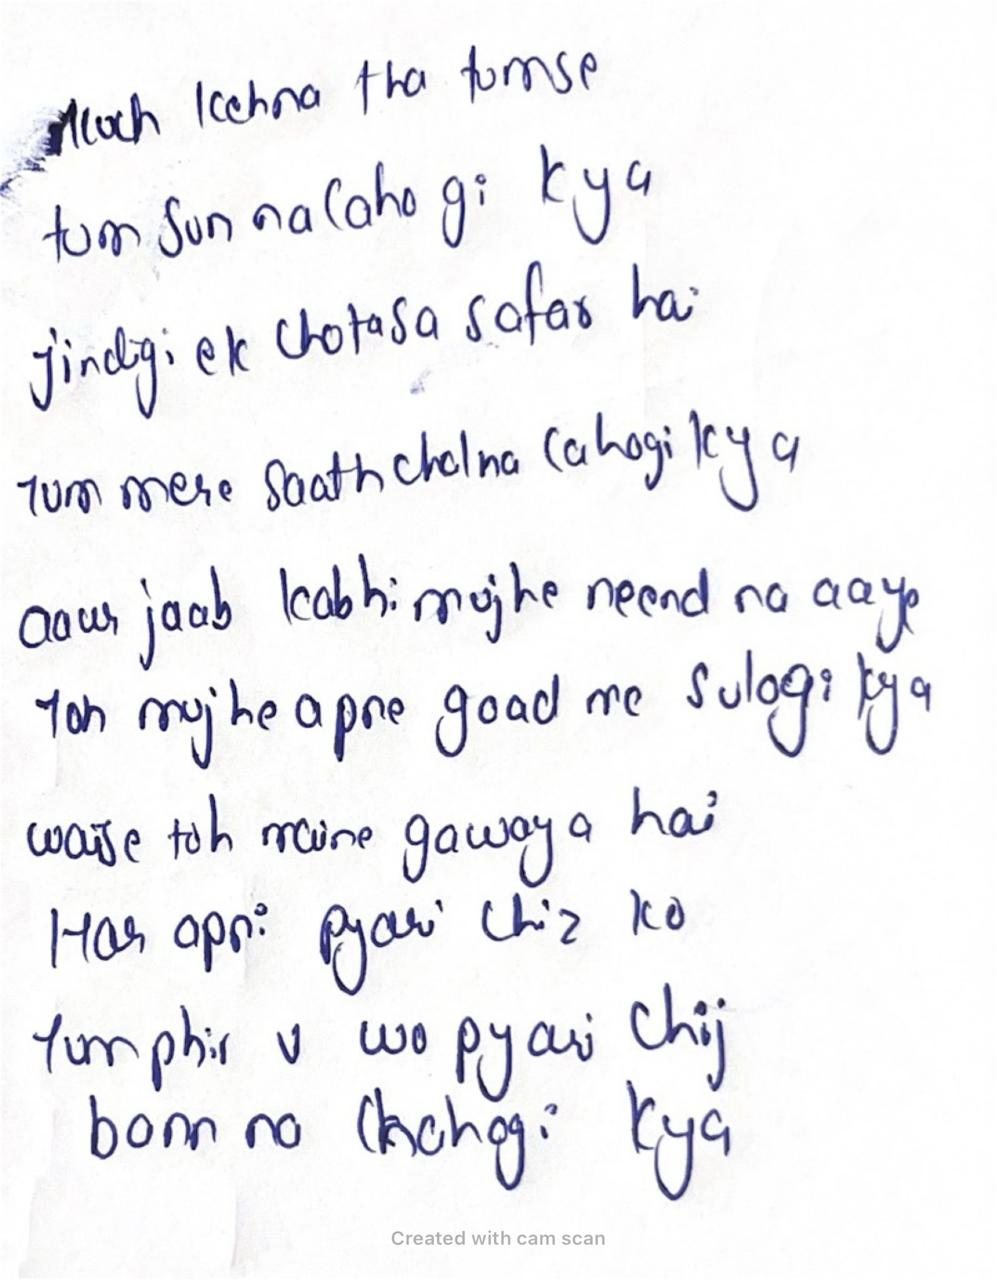 Kuch kehna tha tumse
tum sun na caho gi kya
jindgi ek chotasa safar hai
Tum mere saath chalna cahogi kya
aaur jaab kabhi mujhe neend na aaye
Toh mujhe apne goad me sulogi kya
waise toh maine gawaya hai
Har apni pyari chiz ko
Tum phir v wo pyari chij
bann na chahogi kya
Created with cam scan